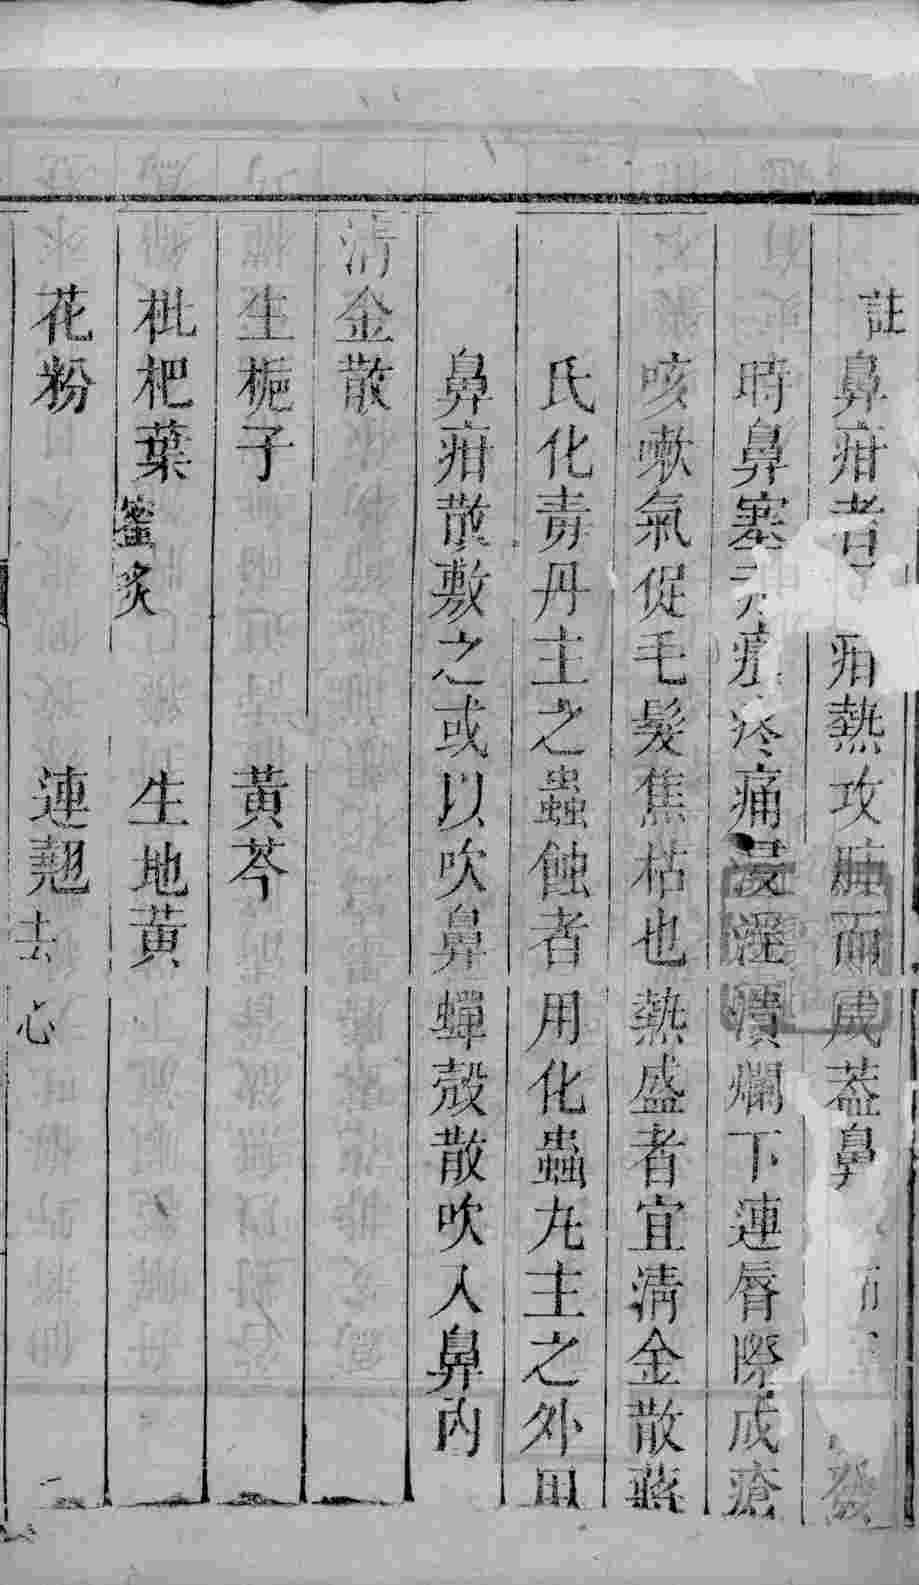 註鼻疳者疳熱攻肺而成蓋鼻發
時鼻塞赤癢疼痛浸淫潰爛下連脣際成瘡
咳嗽氣促毛髮焦枯也熱盛者宜清金散蔣
氏化青丹主之蟲蝕者用化蟲丸主之外用
鼻疳散敷之或以吹鼻蟬殼散吹入鼻內
清金散
生梔子 黃芩
枇杷葉蜜炙 生地黄
花粉 連翹去心